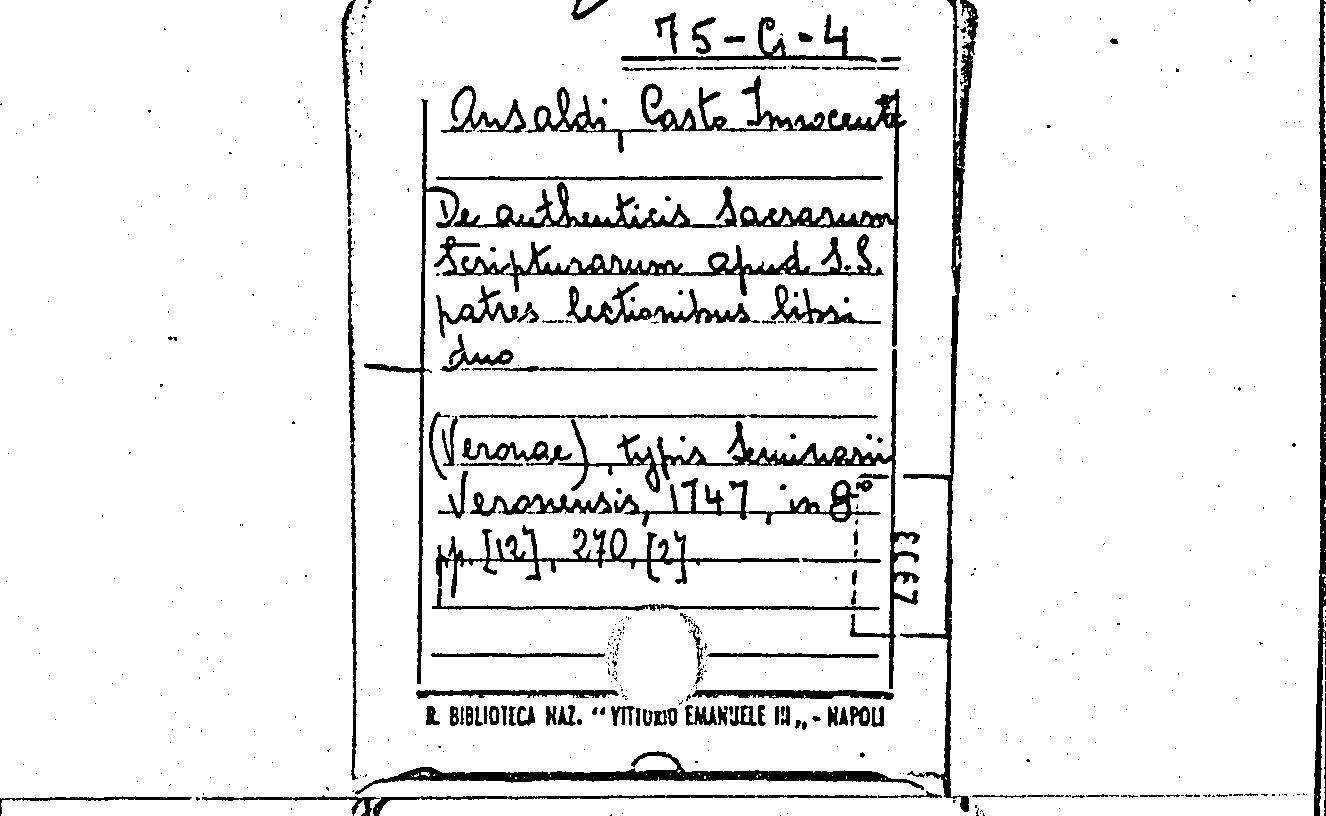 75-Ci-4
Ansaldi, Casto Innocente
De authenticis Sacrarum
Scripturarum apud S.S.
patres lectionibus libri
duo
(Veronae), typis Seminarii
Veronensis, 1747, in 8°
pp. [12], 270, [2].
R. BIBLIOTECA NAZ. “VITTORIO EMANUELE III„ - NAPOLI